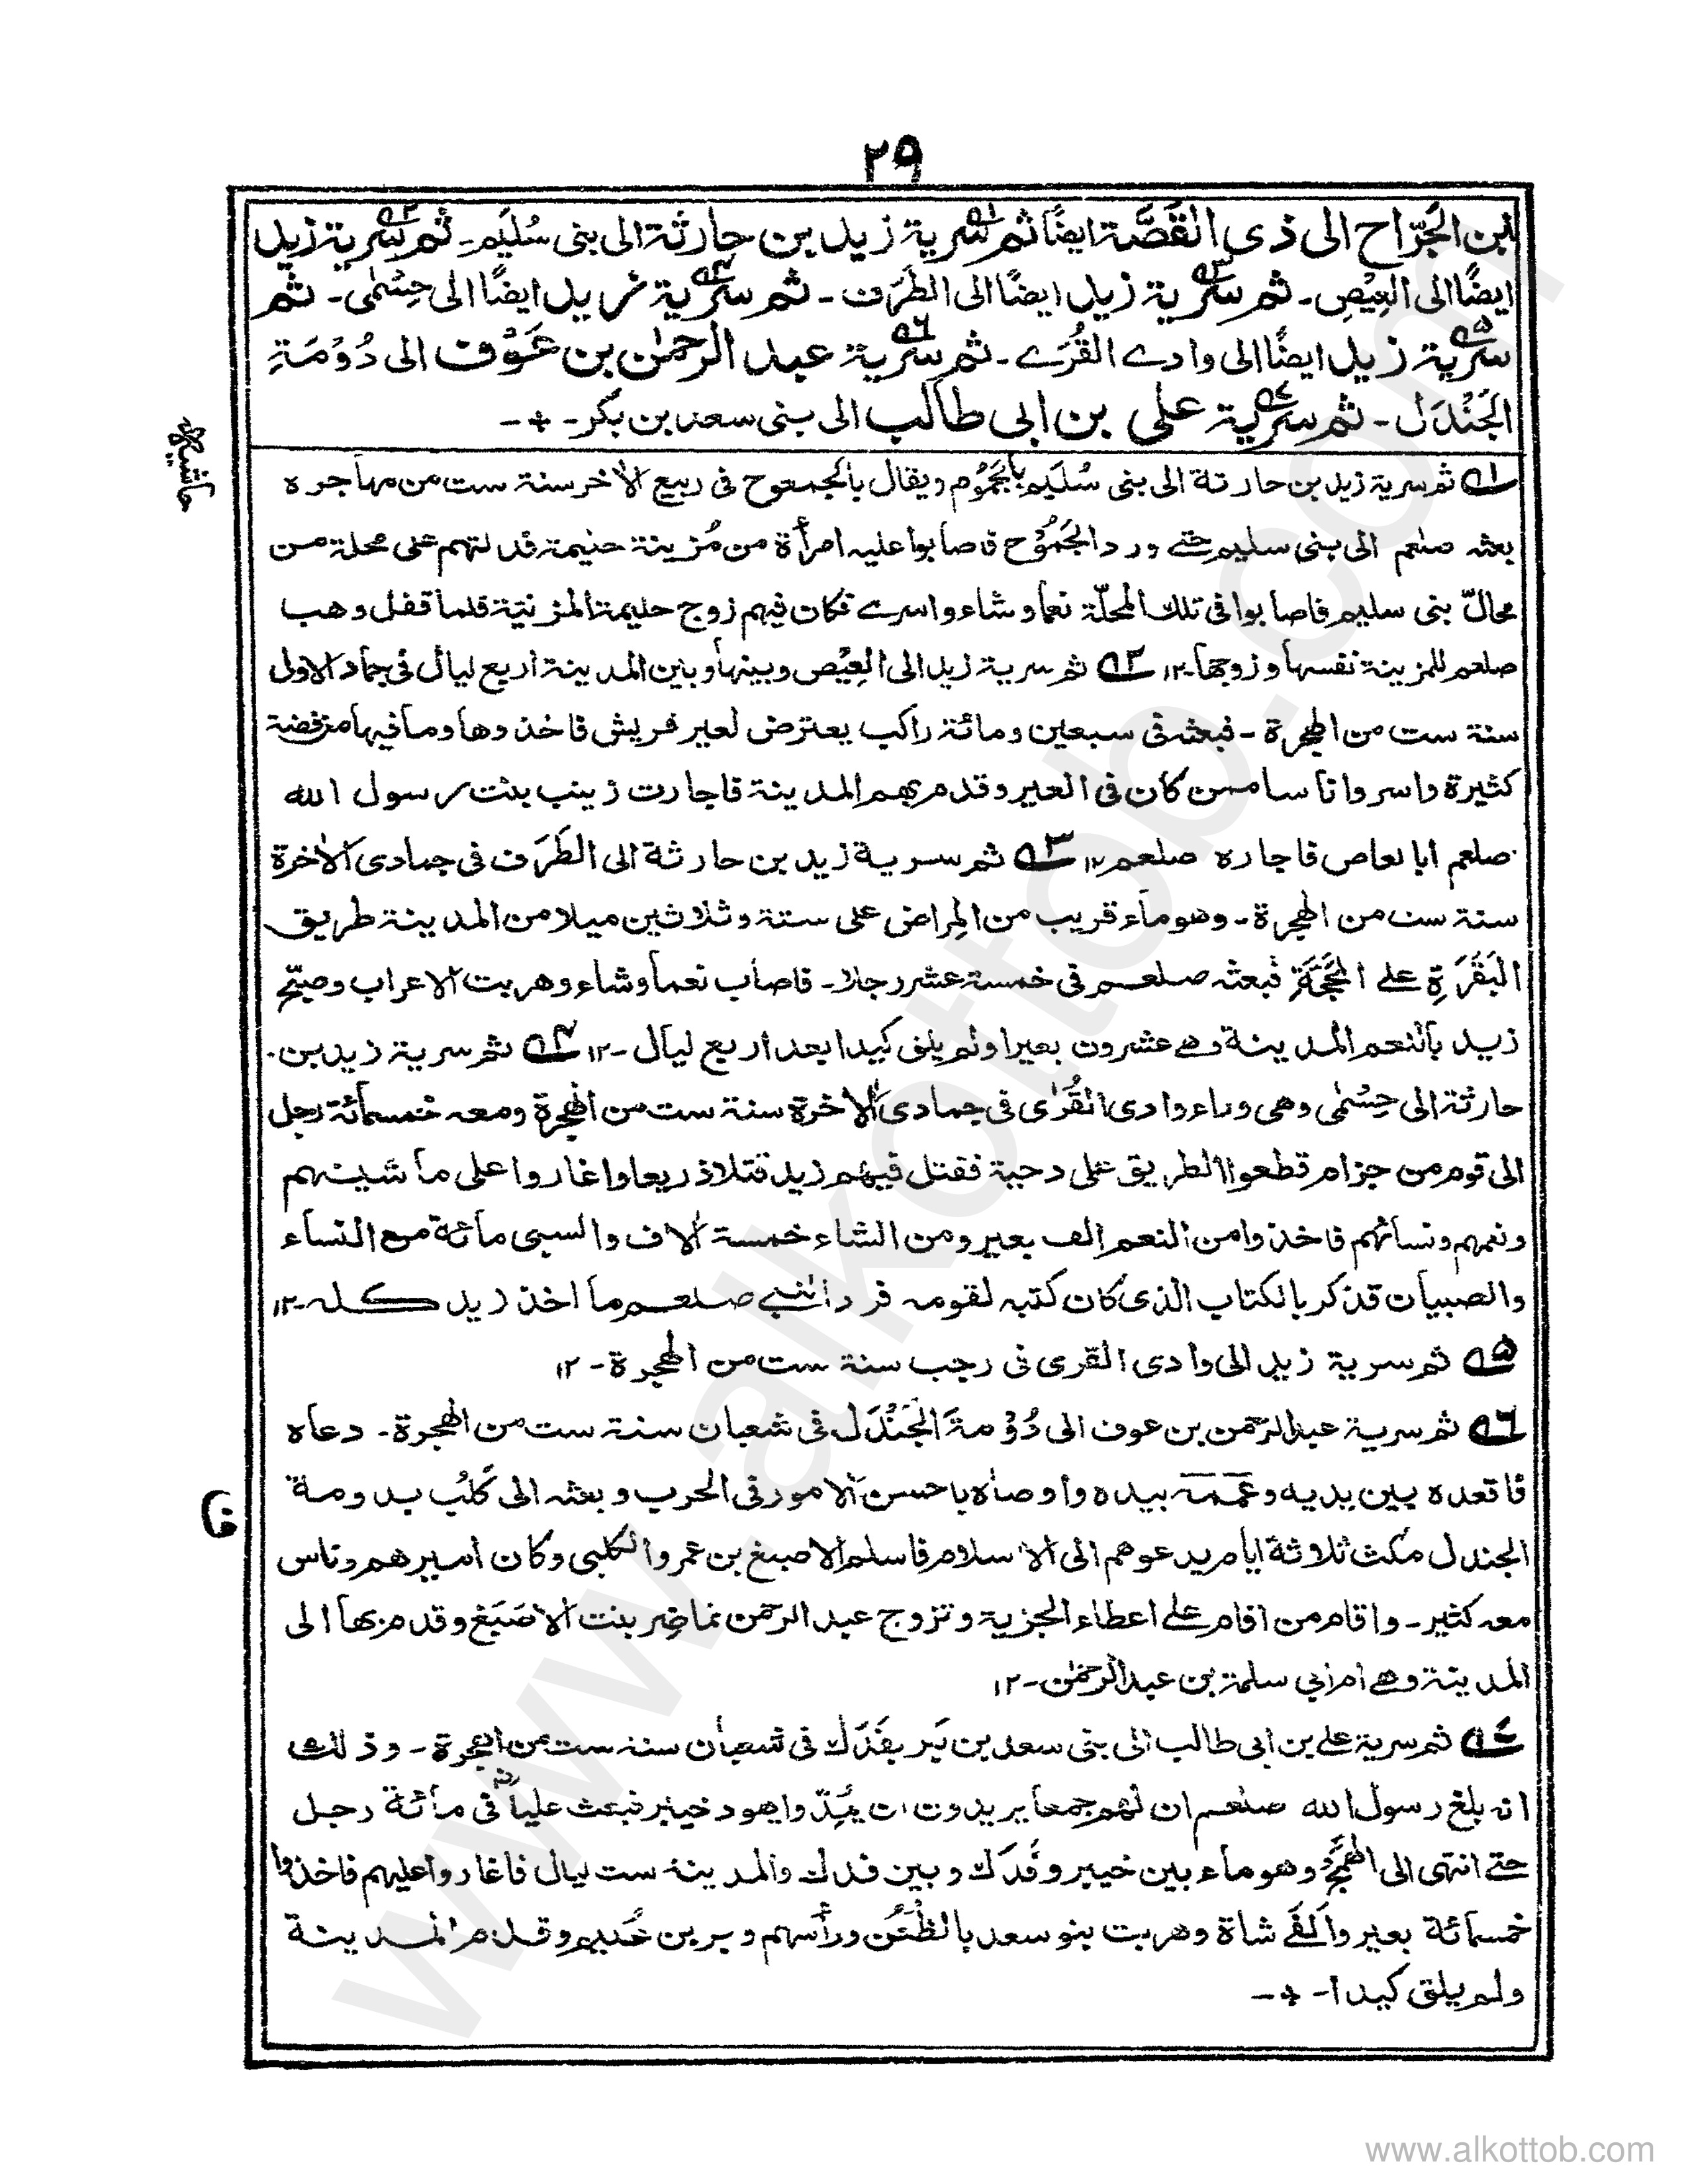 ٢٩
ابن الجَرّاح الى ذى القَصَّة ايضًا ثم سرية زيد بن حارثة الى بنى سُلَيم۔ ثم سرية زيد
ايضًا الى العِيْصِ۔ ثم سرية زيد ايضًا الى الطَرَف۔ ثم سرية زيد ايضًا الى حِسْمٰى۔ ثم
سرية زيد ايضًا الى وادے القُرٰے۔ ثم سرية عبد الرحمٰن بن عَوْف الى دُوْمَةِ
الجَنْدَل۔ ثم سرية على بن ابى طالب الى بنى سعد بن بكر۔ ٭۔
حاشيه
١ ثم سرية زيد بن حارثة الى بنى سُلَيم بالجَمُوْم ويقال بالجموح فى ربيع الاٰخر سنة ست من مهاجره
بعثه صلعم الى بنى سليم حتے ورد الجَمُوْح فاصابوا عليه امرأة من مُزينة حليمة فدلتهم على محلة من
محالّ بنى سليم فاصابوا فى تلك المحلّة نعما وشاء واسرے فكان فيهم زوج حليمة المزنية فلما قفل وهب
صلعم للمزينة نفسها وزوجها۔١٢ ٢ ثم سرية زيد الى العِيْص وبينها وبين المدينة اربع ليال فى جماد الاولى
سنة ست من الهجرة۔ فبعثه فى سبعين ومائة راكب يعترض لعير قريش فاخذوها وما فيها من فضة
كثيرة واسروا ناسا ممن كان فى العير وقدم بهم المدينة فاجارت زينب بنت رسول الله
صلعم ابا لعاص فاجاره صلعم ١٢ ٣ ثم سرية زيد بن حارثة الى الطَرَف فى جمادى الاٰخرة
سنة ست من الهجرة۔ وهو ماء قريب من المِراض على ستة وثلاثين ميلا من المدينة طريق
البَقَرَةِ علے المَحَجَّةِ فبعثه صلعم فى خمسة عشر رجلا۔ فاصاب نعما وشاء وهربت الاعراب وصبّح
زيد بالنعم المدينة وهے عشرون بعيرا ولم يلق كيدا بعد اربع ليال۔١٢ ٤ ثم سرية زيد بن
حارثة الى حِسْمٰى وهى وراء وادى القُرٰى فى جمادى الاٰخرة سنة ست من الهجرة ومعه خمسمائة رجل
الى قوم من جزام قطعوا الطريق على دحية فقتل فيهم زيد قتلا ذريعا واغاروا على ماشيتهم
ونعمهم ونسائهم فاخذوا من النعم الف بعير ومن الشاء خمسة اٰلاف والسبى مائة مع النساء
والصبيان فذكر بالكتاب الذى كان كتبه لقومه فرد النبے صلعم ما اخذ زيد كله۔١٢
٥ ثم سرية زيد الى وادى القرى فى رجب سنة ست من الهجرة۔١٢
٦ ثم سرية عبد الرحمن بن عوف الى دُوْمة الجَنْدَل فى شعبان سنة ست من الهجرة۔ دعاه
فاقعده بين يديه وعممه بيده واوصاه باحسن الامور فى الحرب وبعثه الى كَلْب بدومة
الجندل مكث ثلاثة ايام يدعوهم الى الاسلام فاسلم الاصبغ بن عمرو الكلبى وكان اميرهم وناس
معه كثير۔ واقام من اقام علے اعطاء الجزية وتزوج عبد الرحمن تماضِر بنت الاصَبَغ وقدم بها الى
المدينة وهے ام ابي سلمة بن عبد الرحمٰن۔١٢
٧ ثم سرية علے بن ابى طالب الى بنى سعد بن بكر بفَدَك فى شعبان سنة ست من الهجرة۔ وذلك
انه بلغ رسول الله صلعم ان لهم جمعا يريدون ان يُمِدّوا يهود خيبر فبعث علياً رضـ فى مائة رجل
حتے انتهى الى الهَمَج وهو ماء بين خيبر وفَدَك وبين فدك والمدينة ست ليال فاغاروا عليهم فاخذوا
خمسمائة بعير واَلفَے شاة وهربت بنو سعد بالظُعُن ورأسهم وبر بن عُليم وقدم المدينة
ولم يلق كيدا۔ ٭۔
www.alkottob.com
www.alkottob.com